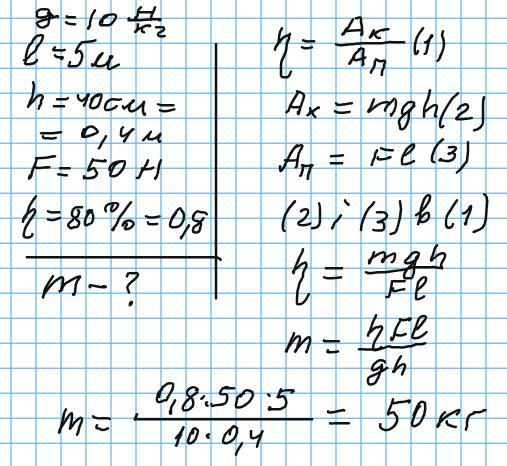 g = 10 Н/кг
l = 5 м
h = 40 см =
= 0,4 м
F = 50 Н
η = 80% = 0,8
m - ?
η = Aк/Aп (1)
Aк = mgh (2)
Aп = Fl (3)
(2) і (3) в (1)
η = mgh/Fl
m = ηFl/gh
m = 0,8·50·5/10·0,4 = 50 кг